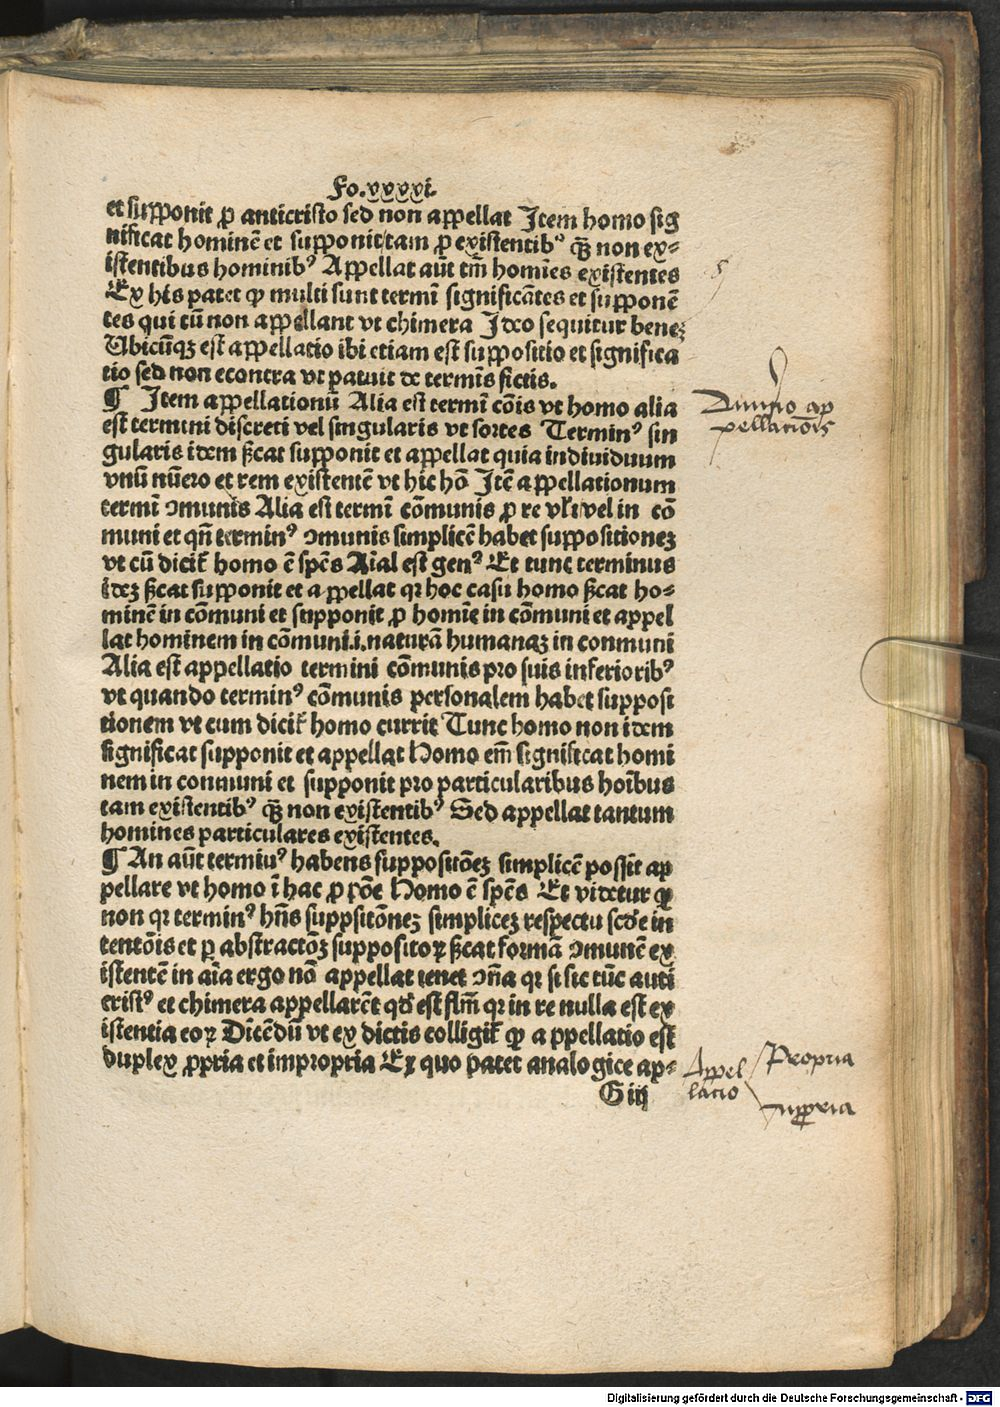 Fo.xxxxi.
et supponit ꝓ anticristo sed non appellat Item homo sig
nificat hominē et supponit tam ꝓ existentibꝰ qꝫ̄ non ex⸗
istentibus hominibꝰ Appellat aūt tm̄ homīes existentes
Ex his patet ꝙ multi sunt termī significātes et supponē
tes qui tū non appellant vt chimera Ideo sequitur beneꝫ
Ubicūqꝫ est appellatio ibi etiam est suppositio et significa
tio sed non econtra vt patuit de termīs fictis.
¶ Item appellationū Alia est termī cōis vt homo alia
est termini discreti vel singularis vt sortes Terminꝰ sin
gularis idem ßcat supponit et appellat quia individuum
vnū nūero et rem existentē vt hic hō Itē appellationum
termī ꝯmunis Alia est termī cōmunis ꝓ re vl̄i vel in cō
muni et qn̄ terminꝰ ꝯmunis simplicē habet suppositioneꝫ
vt cū dicit̄ homo ē spēs Aīal est genꝰ Et tunc terminus
ideꝫ ßcat supponit et appellat qꝛ hoc casu homo ßcat ho⸗
minē in cōmuni et supponit ꝓ homīe in cōmuni et appel
lat hominem in cōmuni.i.naturā humanaꝫ in conmuni
Alia est appellatio termini cōmunis pro suis inferioribꝰ
vt quando terminꝰ cōmunis personalem habet supposi
tionem vt cum dicit̄ homo currit Tunc homo non idem
significat supponit et appellat Homo em̄ significat homi
nem in conmuni et supponit pro particularibus hoībus
tam existentibꝰ qꝫ̄ non existentibꝰ Sed appellat tantum
homines particulares existentes.
¶ An aūt termiuꝰ habens suppositōneꝫ simplicē possit ap
pellare vt homo ī hac ꝓpōe Homo ē spēs Et videtur ꝙ
non qꝛ terminꝰ hn̄s suppsitōneꝫ simpliceꝫ respectu scd̄e in
tentōis et ꝑ abstractōꝫ suppositoꝝ ßcat formā ꝯmunē ex
istentē in aīa ergo nō appellat tenet ꝯn̄a qꝛ si sic tūc anti
cristꝰ et chimera appellarēt qd̄ est flm̄ qꝛ in re nulla est ex
istentia eoꝝ Dicēdū vt ex dictis colligit̄ ꝙ appellatio est
duplex ꝓpria et impropria Ex quo patet analogice ap⸗
G iij
Divisio ap
pellationis
Appel
latio
Propria
Impropria